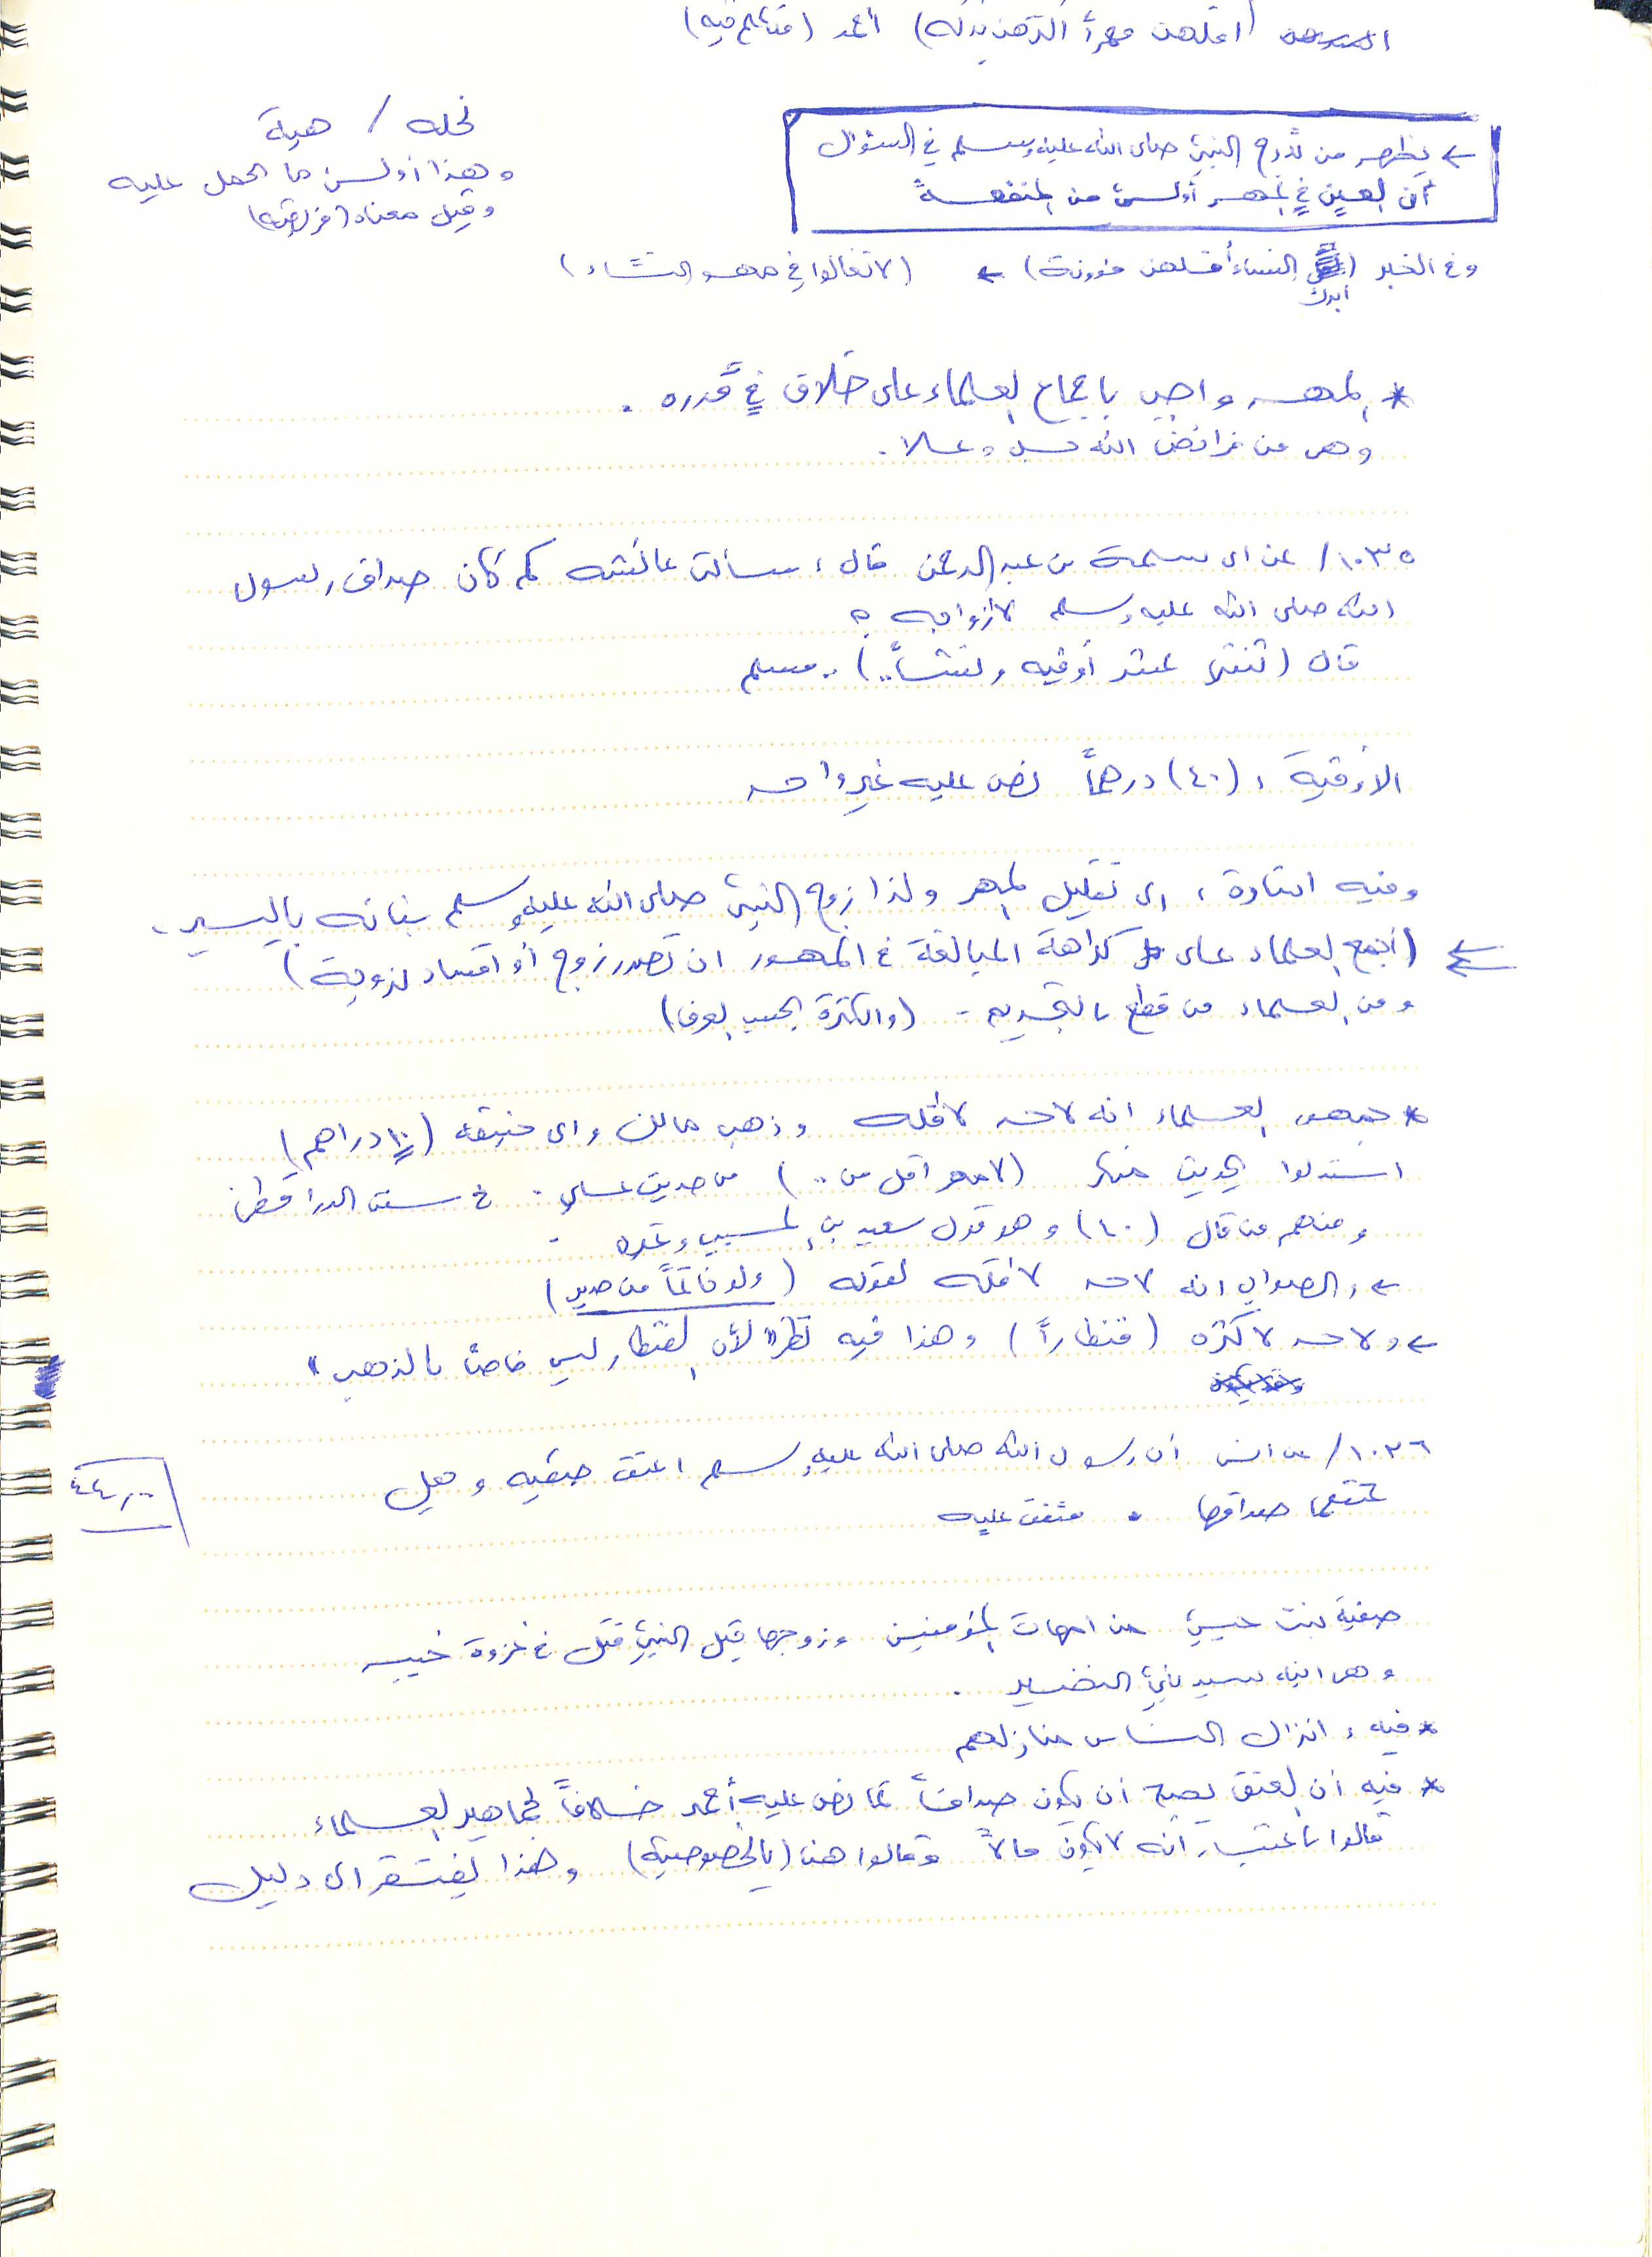 (أقلهن مهراً أكثرهن بركة) أحمد (متكلم فيه)
نحله / هبة
وهذا أولى من ما الحمل عليه
وقيل معناه (فريضة)
← يظهر من تدرج النبي صلى الله عليه وسلم في السؤال
أن العين في المهر أولى من المنفعة
وفي الخبر (أبرك النساء أقلهن مؤونة) ← (لا تغالوا في مهور النساء)
* المهر واجب بإجماع العلماء على خلاف في قدره .
وهو من فرائض الله جل وعلا .
١٠٣٥/ عن ابي سلمة بن عبد الرحمن قال : سالت عائشه كم كان صداق رسول
الله صلى الله عليه وسلم لأزواجه ؟
قال (ثنتي عشر أوقيه ونشاً ..) .. مسلم
الأوقية : (٤٠) درهماً نص عليه غير واحد
وفيه اشارة : الى تقليل المهر ولذا زوج النبي صلى الله عليه وسلم بناته باليسير .
(أجمع العلماء على كراهة المبالغة في المهور ان تضرر زوج أو افساد لزوجة)
ومن العلماء من قطع بالتحريم - (والكثرة بحسب العرف)
* جمهور العلماء انه لا حد لأقله وذهب مالك وابي حنيفه (١٠ دراهم)
استدلوا بحديث منكر (لا مهر اقل من ..) من حديث علي . في سنن الدارقطني
ومنهم من قال (٤٠) وهو قول سعيد بن المسيب وغيره .
← والصواب انه لا حد لأقله لقوله (ولو خاتماً من حديد)
← ولا حد لأكثره (قنطاراً) وهذا فيه نظر "لأن القنطار ليس خاصاً بالذهب"
١٠٣٦/ عن انس أن رسول الله صلى الله عليه وسلم اعتق صفيه وجعل
عتقها صداقها . متفق عليه
٤٤,٠٠
صفية بنت حيي من امهات المؤمنين وزوجها قبل النبي قتل في غزوة خيبر
وهي ابنه سيد بني النضير .
* فيه : انزال الناس منازلهم
* فيه أن العتق يصح أن يكون صداقاً كما نص عليه أحمد خلافاً لجماهير العلماء
قالوا باعتبار أنه لا يكون مالاً وقالوا هنا (بالخصوصية) وهذا يفتقر الى دليل